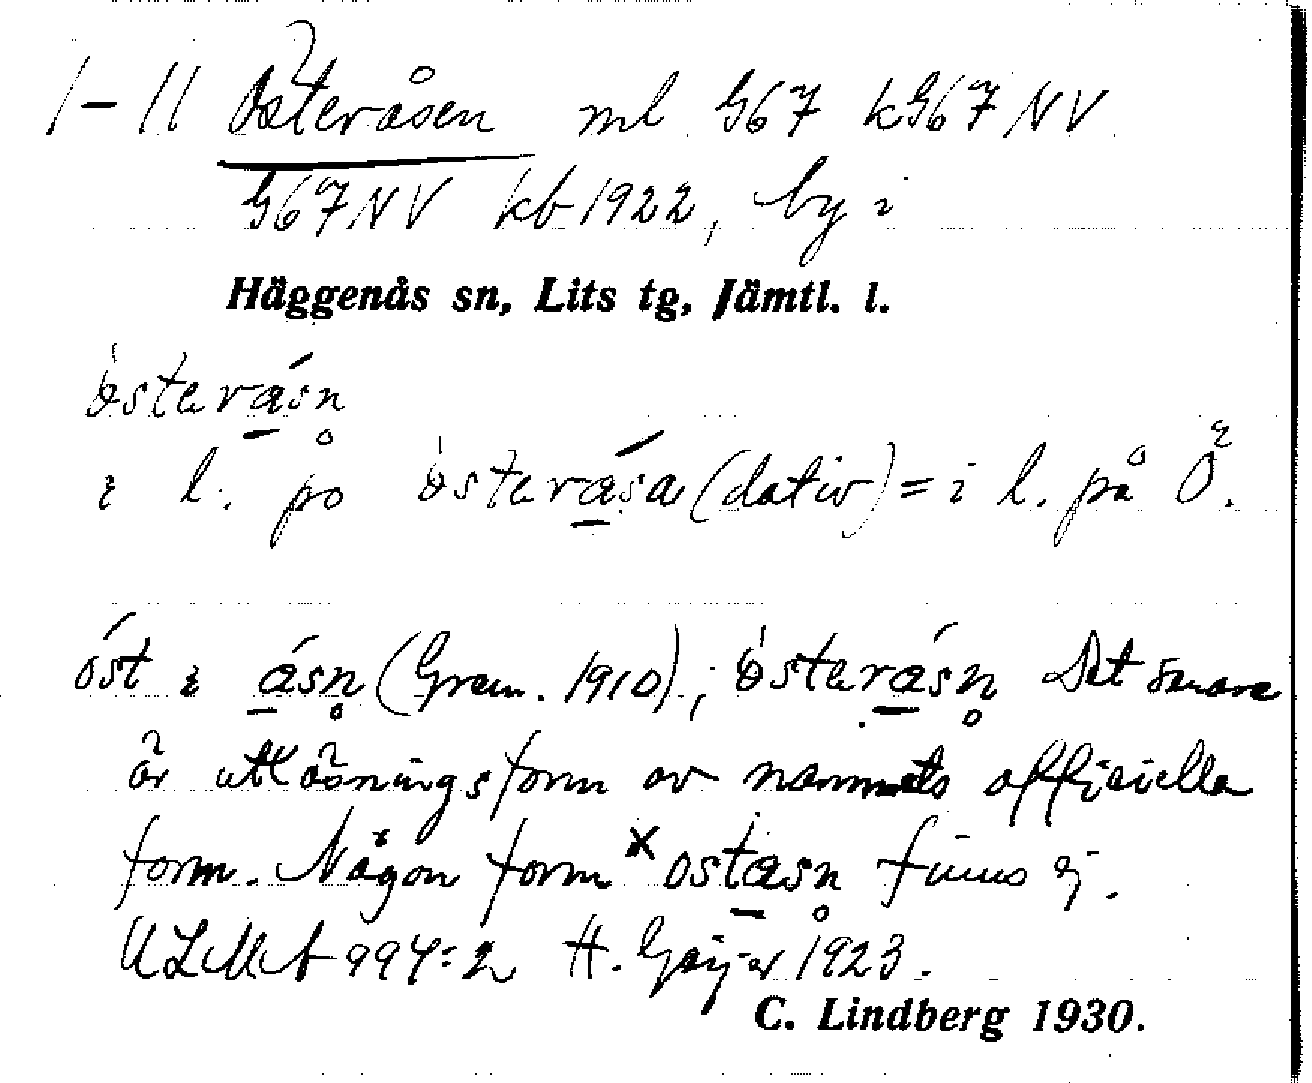 1-11 Österåsen ml G67 kG67NV
G67NV kb 1922, by i
Häggenås sn, Lits tg, Jämtl. l.
östaråsn
i l. po österåsa (dativ) = i l. på Ö.
öst i åsn (Gram. 1910); östaråsn Det senare
är uttasningsform av namnets officiella
form. Någon form x ostasn finns ej.
ULMA 994:2 H. Geijer 1923.
C. Lindberg 1930.